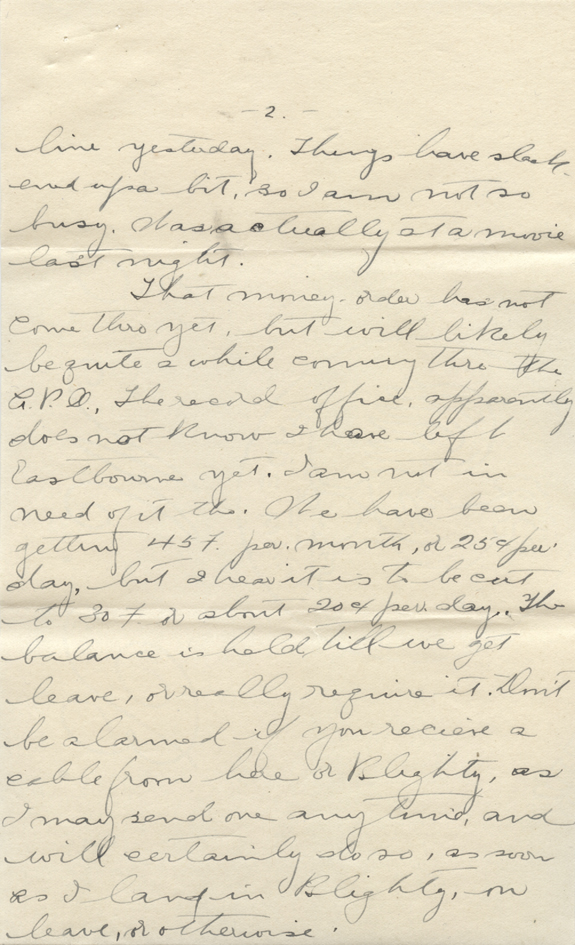 - 2. -
line yesterday. Things have slack-
ened up a bit, so I am not so
busy. Was actually at a movie
last night.
That money-order has not
come thro yet, but will likely
be quite a while coming thro the
G.P.O., The record office, apparently
does not know I have left
Eastbourne yet. I am not in
need of it tho. We have been
getting 45 f. per. month, or 25¢ per.
day, but I hear it is to be cut
to 30 f or about 20¢ per. day. The
balance is held till we get
leave, or really require it. Don't
be alarmed if you recieve a
cable from here or Blighty, as
I may send one any time, and
will certainly do so, as soon
as I land in Blighty, on
leave, or otherwise.